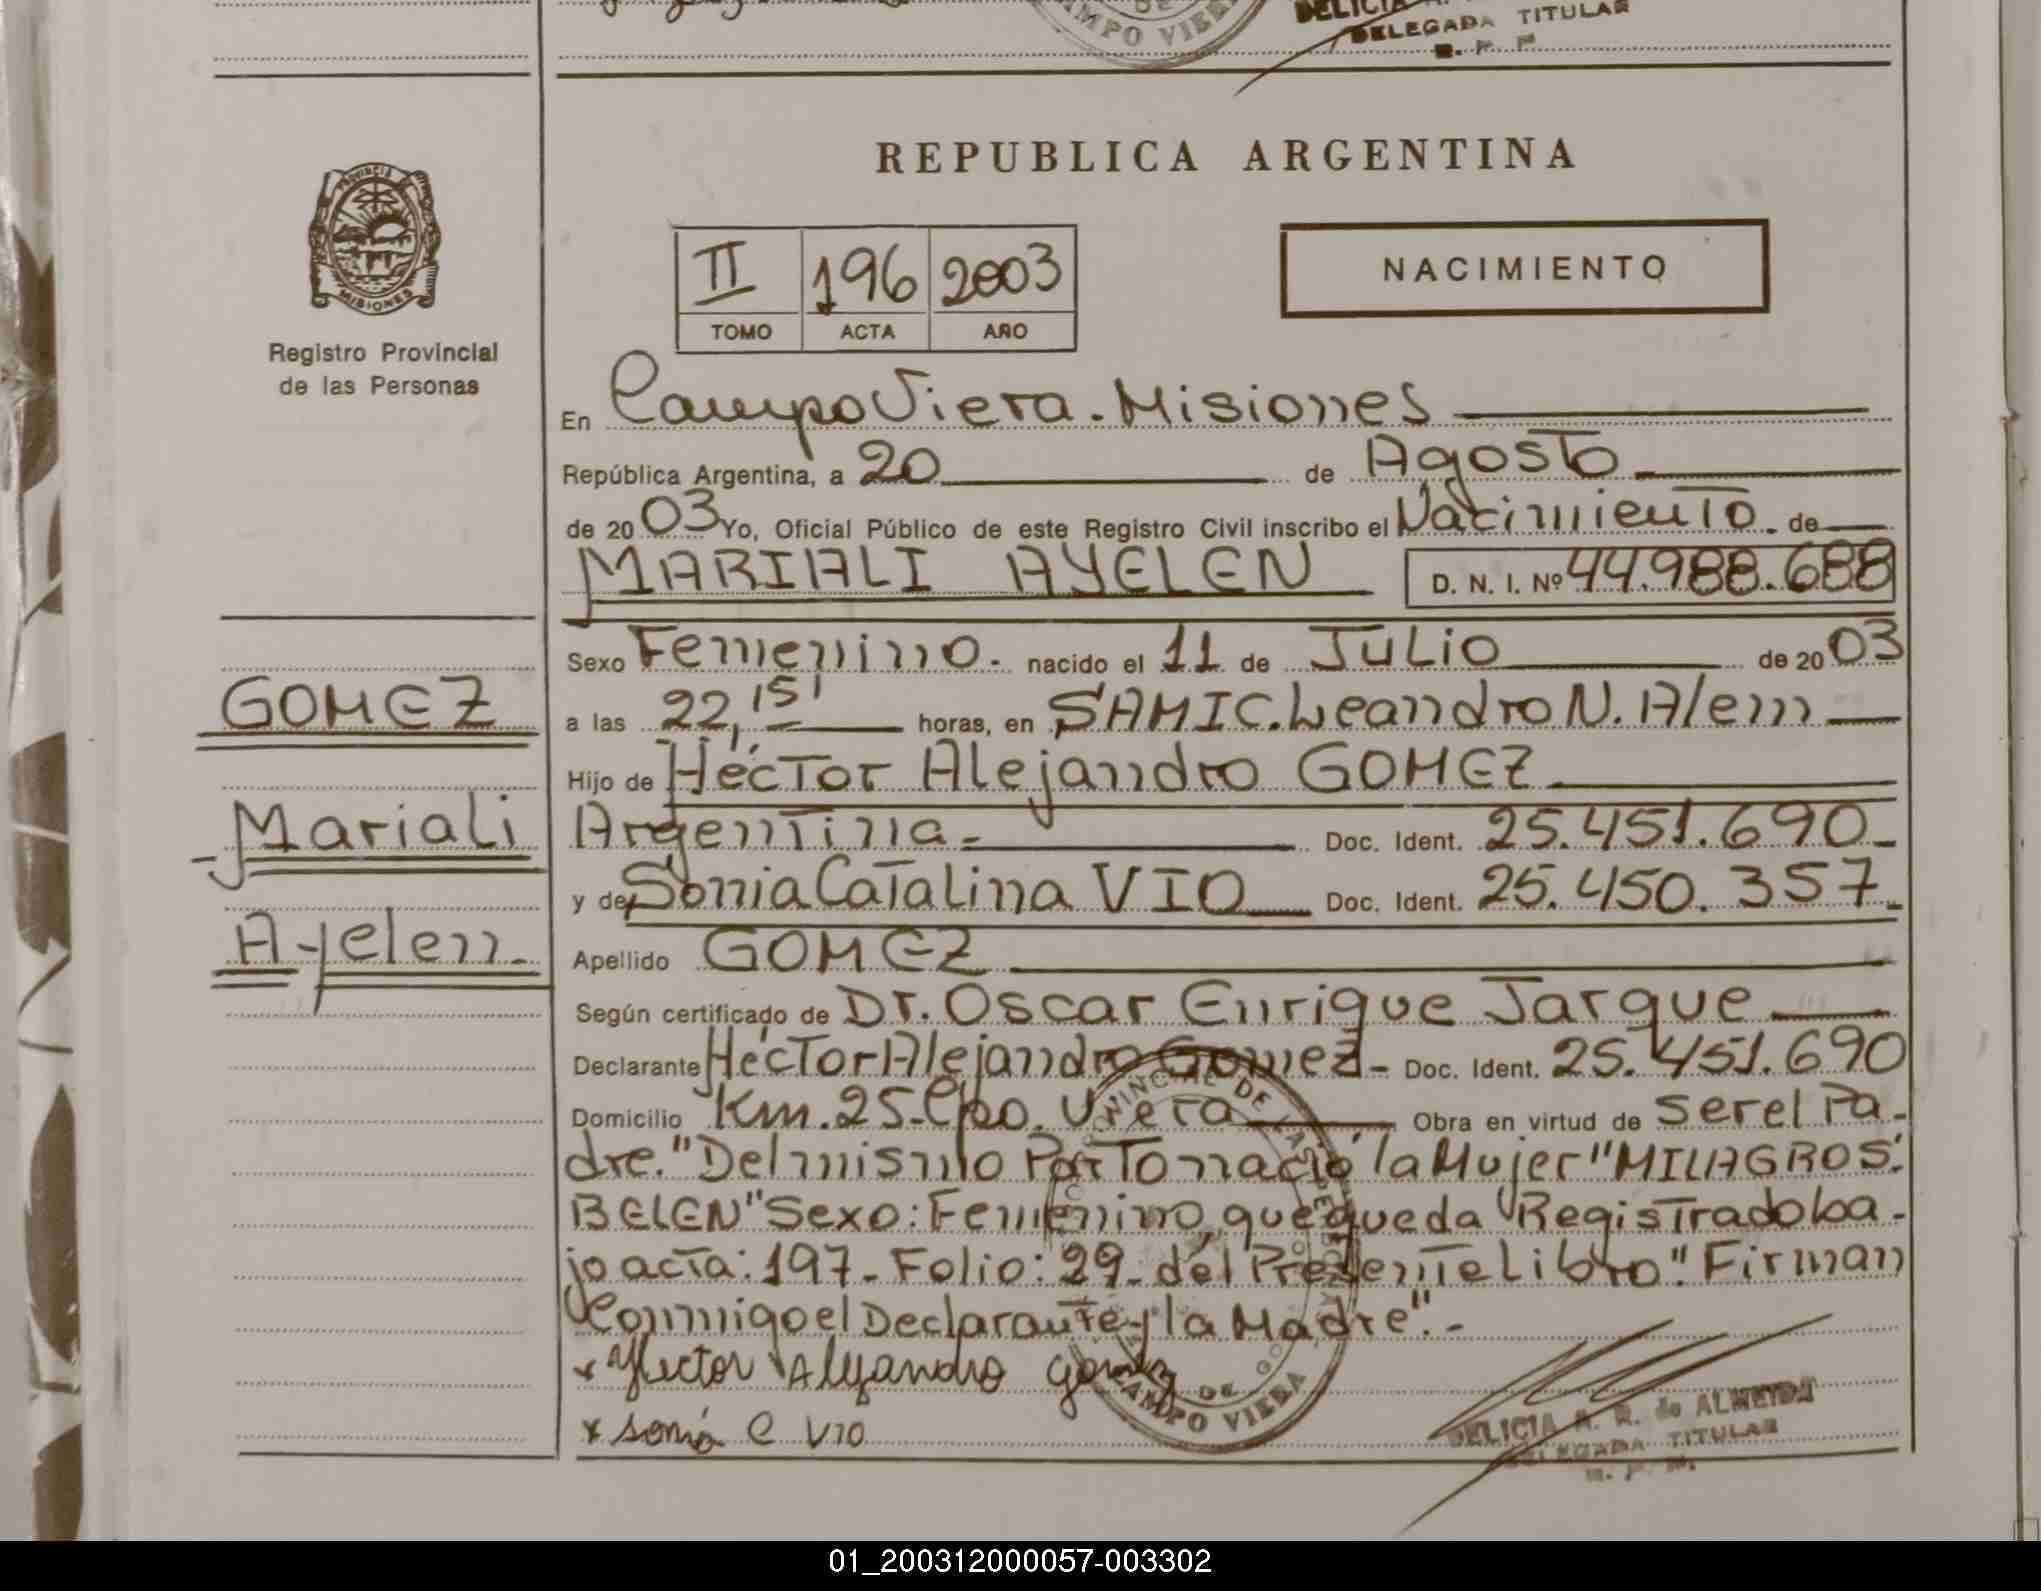 DELEGADA TITULAR
CAMPO VIERA
REPUBLICA ARGENTINA
PROVINCIA DE
MISIONES
Registro Provincial
de las Personas
II 196 2003
TOMO ACTA AÑO
NACIMIENTO
En Campo Viera.Misiones
República Argentina, a 20 de Agosto
de 2003 Yo, Oficial Público de este Registro Civil inscribo el Nacimiento de
MARIALI AYELEN D. N. I. Nº 44.988.688
Sexo Femenino. nacido el 11 de Julio de 2003
GOMEZ
a las 22,15' horas, en SAMIC.Leandro N. Alem
Hijo de Héctor Alejandro GOMEZ
Mariali
Argentina Doc. Ident. 25.451.690
y de Sonia Catalina VIO Doc. Ident. 25.450.357
Ayelen
Apellido GOMEZ
Según certificado de Dr. Oscar Enrique Jarque
Declarante Héctor Alejandro Gomez Doc. Ident. 25.451.690
Domicilio Km.25-Cpo. Viera Obra en virtud de ser el Pa-
dre."Del mismo Parto nació la Mujer "MILAGROS
BELEN" Sexo: Femenino, que queda Registrado ba-
jo acta: 197- Folio: 29- del Presente Libro". Firman
Conmigo el Declarante y la Madre".-
x Hector Alejandro Gomez
x Sonia C VIO
PROVINCIAL DE LAS PERSONAS
CAMPO VIERA
DELICIA A. R. de ALMEIDA
DELEGADA TITULAR
01_200312000057-003302